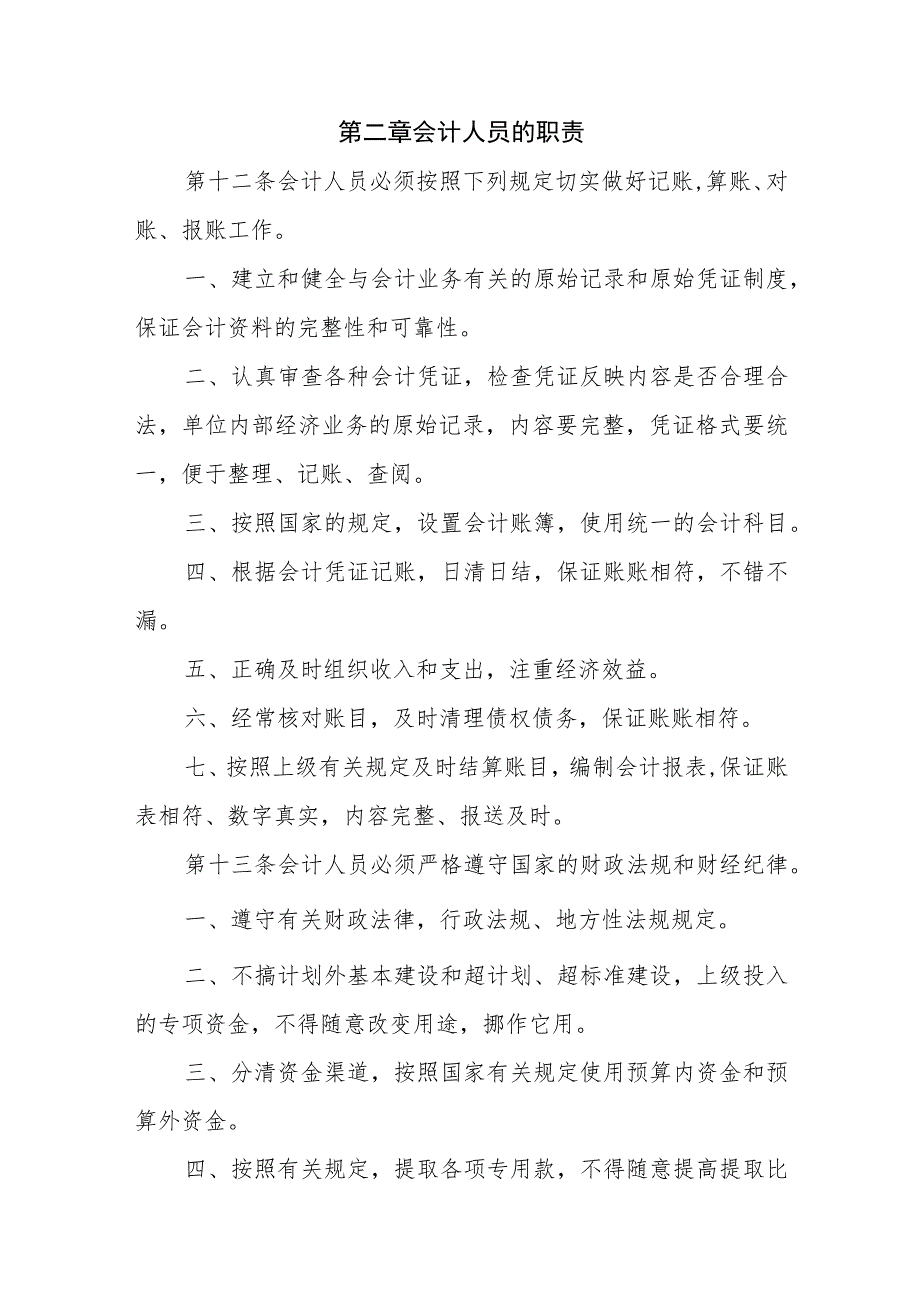 第二章会计人员的职责
第十二条会计人员必须按照下列规定切实做好记账,算账、对
账、报账工作。
一、建立和健全与会计业务有关的原始记录和原始凭证制度，
保证会计资料的完整性和可靠性。
二、认真审查各种会计凭证，检查凭证反映内容是否合理合
法，单位内部经济业务的原始记录，内容要完整，凭证格式要统
一，便于整理、记账、查阅。
三、按照国家的规定，设置会计账簿，使用统一的会计科目。
四、根据会计凭证记账，日清日结，保证账账相符，不错不
漏。
五、正确及时组织收入和支出，注重经济效益。
六、经常核对账目，及时清理债权债务，保证账账相符。
七、按照上级有关规定及时结算账目,编制会计报表,保证账
表相符、数字真实，内容完整、报送及时。
第十三条会计人员必须严格遵守国家的财政法规和财经纪律。
一、遵守有关财政法律，行政法规、地方性法规规定。
二、不搞计划外基本建设和超计划、超标准建设，上级投入
的专项资金，不得随意改变用途，挪作它用。
三、分清资金渠道，按照国家有关规定使用预算内资金和预
算外资金。
四、按照有关规定，提取各项专用款，不得随意提高提取比